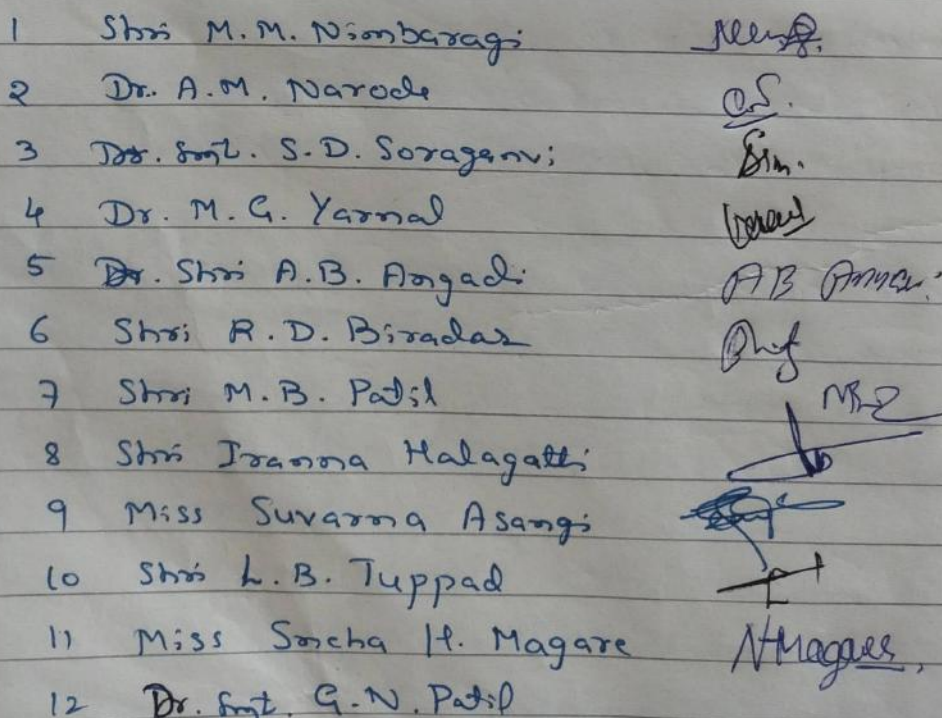 1 Shri M.M. Nimbaragi
2 Dr. A.M. Narode
3 Dr. Smt. S.D. Soraganvi
4 Dr. M.G. Yarnal
5 Dr. Shri A.B. Angadi AB
6 Shri R.D. Biradar
7 Shri M.B. Patil
8 Shri Iranna Halagatti
9 Miss Suvarna Asangi
10 Shri L.B. Tuppad
11 Miss Sncha H. Magare NHMagare
12 Dr. Smt. G.N. Patil